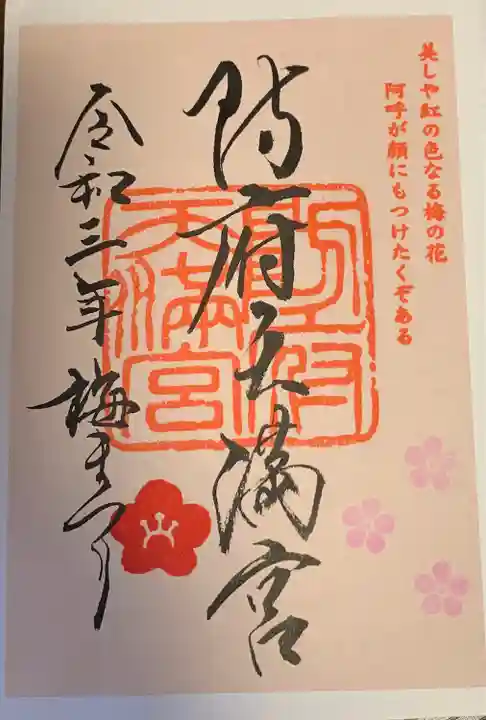 美しや紅の色なる梅の花
阿呼が顔にもつけたくぞある
防府天満宮
令和三年 梅まつり
天満宮